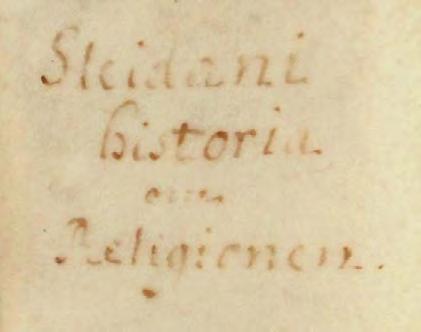 Sleidani
historia
om
Religionen.